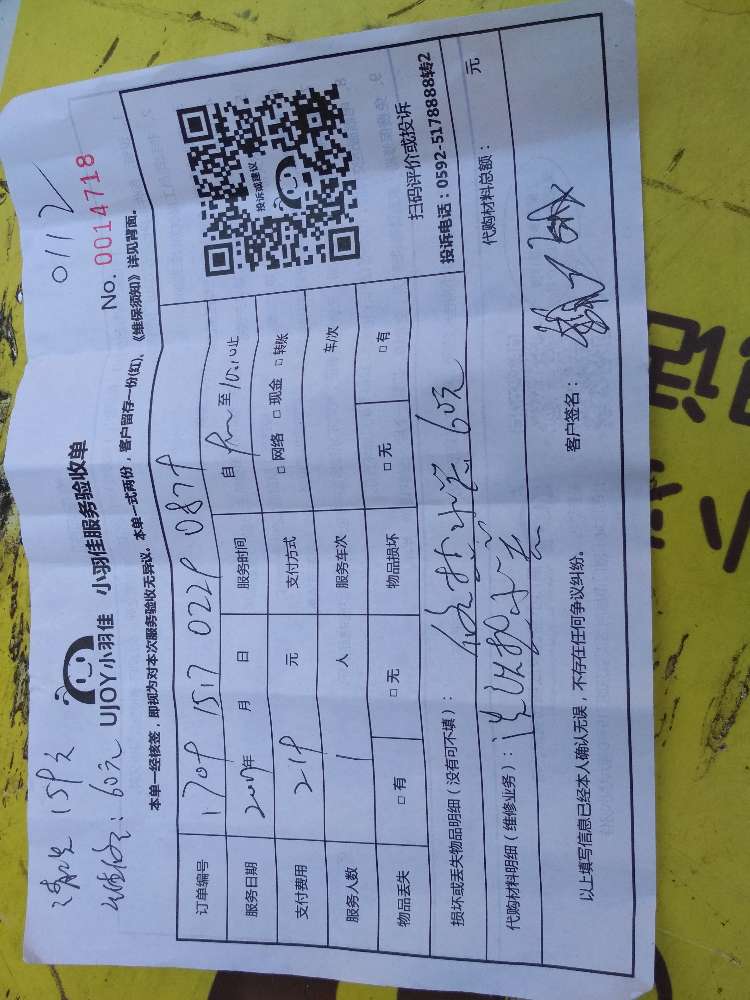 清洗 159元
维修: 60元
0112
UJOY小羽佳 小羽佳服务验收单
No. 0014718
本单一经核签，即视为对本次服务验收无异议。本单一式两份，客户留存一份(红)、《维保须知》详见背面。
订单编号 1709 1517 0229 0879
服务日期 2017年 月 日 服务时间 自 至 10:10止
支付费用 219 元 支付方式 □ 网络 □ 现金 □ 转账
服务人数 1 人 服务车次 车/次
物品丢失 □ 有 □ 无 物品损坏 □ 无 □ 有
投诉或建议
扫码评价或投诉
投诉电话：0592-5178888转2
损坏或丢失物品明细（没有可不填）： 60元
代购材料明细（维修业务）：
代购材料总额： 元
以上填写信息已经本人确认无误，不存在任何争议纠纷。
客户签名：